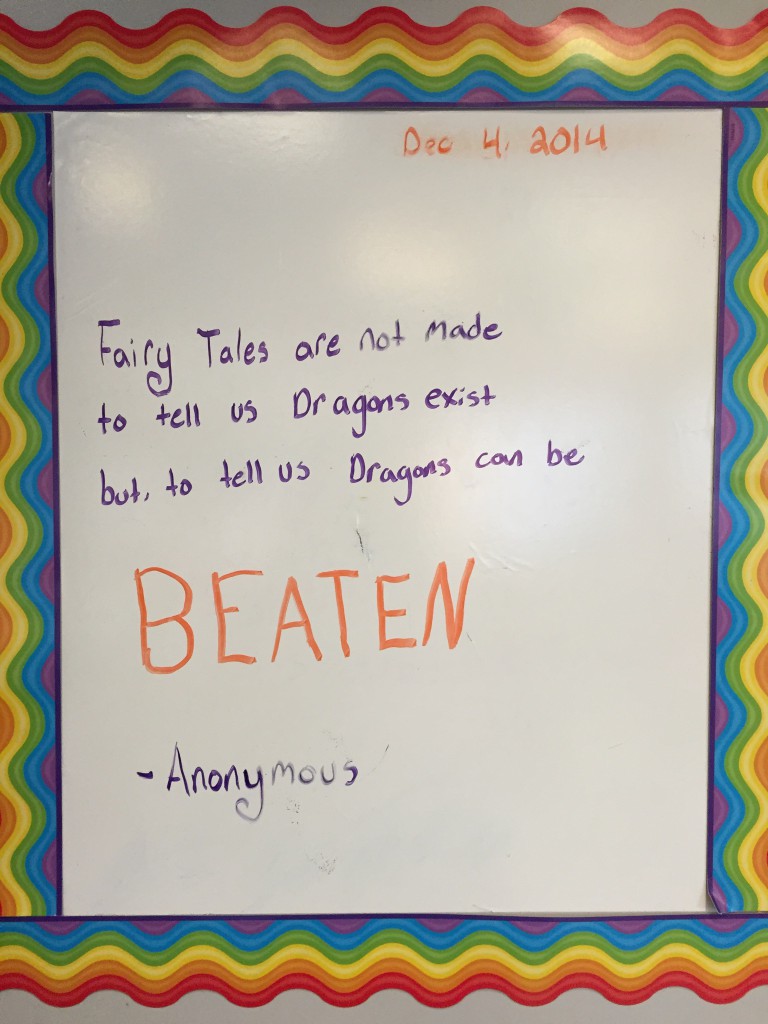 Dec 4, 2014
Fairy Tales are not made
to tell us Dragons exist
but, to tell us Dragons can be
BEATEN
- Anonymous